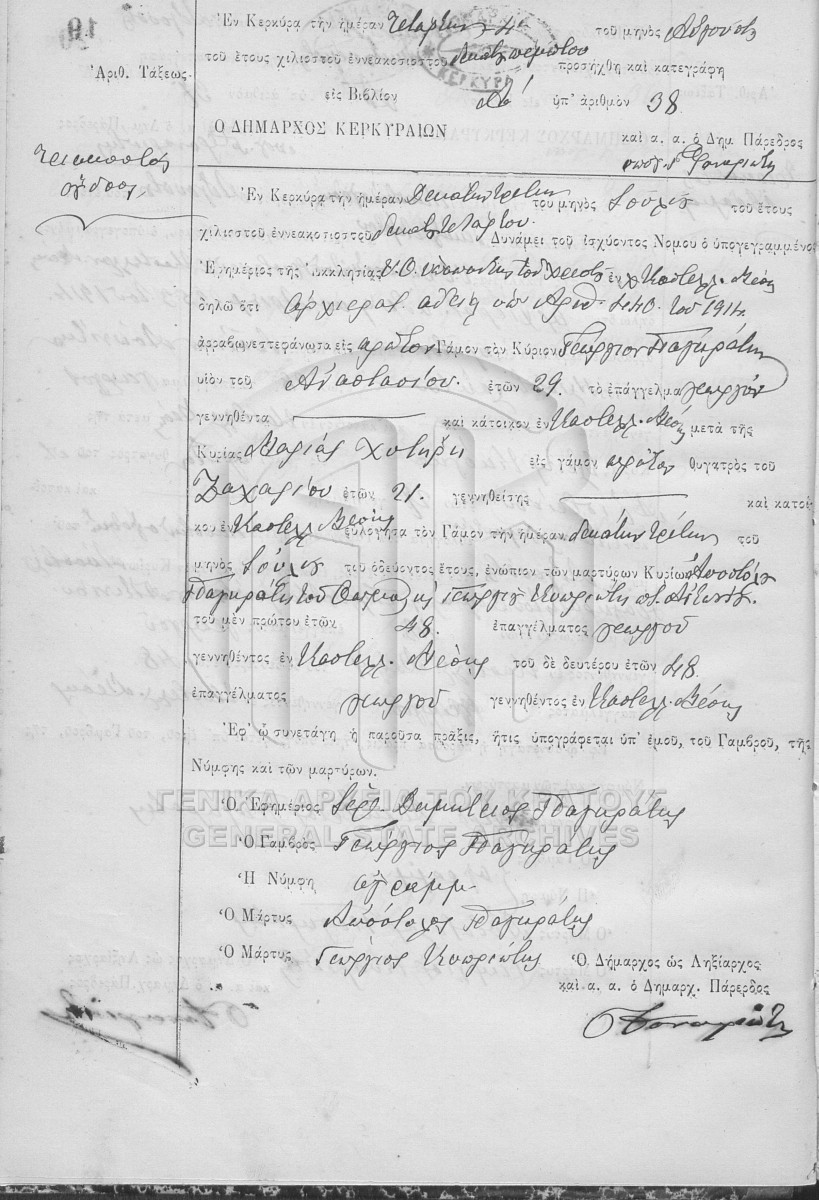 19
Ἐν Κερκύρᾳ τὴν ἡμέραν Τετάρτην 4 τοῦ μηνὸς Αὐγούστου
τοῦ ἔτους χιλιοστοῦ ἐννεακοσιοστοῦ δεκάτου πέμπτου προσήχθη καὶ κατεγράφη
Ἀριθ. Τάξεως
εἰς Βιβλίον Α' ὑπ' ἀριθμὸν 38
Ο ΔΗΜΑΡΧΟΣ ΚΕΡΚΥΡΑΙΩΝ
καὶ α. α. ὁ Δημ Πάρεδρος
τριακοστὸς
ὄγδοος
ΚΕΡΚΥΡ
Ἐν Κερκύρᾳ τὴν ἡμέραν Δεκάτην τρίτην τοῦ μηνὸς Ἰουλίου τοῦ ἔτους
χιλιοστοῦ ἐννεακοσιοστοῦ δεκάτου τετάρτου Δυνάμει τοῦ ἰσχύοντος Νόμου ὁ ὑπογεγραμμένος
Ἐφημέριος τῆς Ἐκκλησίας Υ. Θ. τοῦ ἐν Καστελλ. Μέσης
δηλῶ ὅτι ἀρχιερατ. ἀδείᾳ ὑπ' Ἀριθ. 440. τοῦ 1914.
ἀρραβωνεστεφάνωσα εἰς πρῶτον Γάμον τὸν Κύριον Γεώργιον Παγκράτην
υἱὸν τοῦ Ἀναστασίου. ἐτῶν 29. τὸ ἐπάγγελμα γεωργὸν
γεννηθέντα καὶ κάτοικον ἐν Καστελλ. Μέσης μετὰ τῆς
Κυρίας Μαρίας Χυτήρη εἰς γάμον πρῶτον θυγατρὸς τοῦ
Ζαχαρίου ἐτῶν 21. γεννηθείσης καὶ κατοί-
κου ἐν Καστελλ. Μέσης εὐλόγησα τὸν Γάμον τὴν ἡμέραν δεκάτην τρίτην τοῦ
μηνὸς Ἰουλίου τοῦ ὁδεύοντος ἔτους, ἐνώπιον τῶν μαρτύρων Κυρίων Ἀποστόλου
Παγκράτη τοῦ Γεωργίου Κυπριώτη
τοῦ μὲν πρώτου ἐτῶν 48. ἐπαγγέλματος γεωργοῦ
γεννηθέντος ἐν Καστελλ. Μέσης τοῦ δὲ δευτέρου ἐτῶν 48
ἐπαγγέλματος γεωργοῦ γεννηθέντος ἐν Καστελλ. Μέσης
Ἐφ' ᾧ συνετάγη ἡ παροῦσα πρᾶξις, ἥτις ὑπογράφεται ὑπ' ἐμοῦ, τοῦ Γαμβροῦ, τῆς
Νύμφης καὶ τῶν μαρτύρων.
ΓΕΝΙΚΑ ΑΡΧΕΙΑ ΤΟΥ ΚΡΑΤΟΥΣ
GENERAL STATE ARCHIVES
Ὁ Ἐφημέριος Ἱερ. Δημήτριος Παγκράτης
Ὁ Γαμβρὸς Γεώργιος Παγκράτης
Ἡ Νύμφη ἀγράμμ.
Ὁ Μάρτυς Ἀπόστολος Παγκράτης
Ὁ Μάρτυς Γεώργιος Κυπριώτης
Ὁ Δήμαρχος ὡς Ληξίαρχος
καὶ α. α. ὁ Δημαρχ. Πάρεδρος